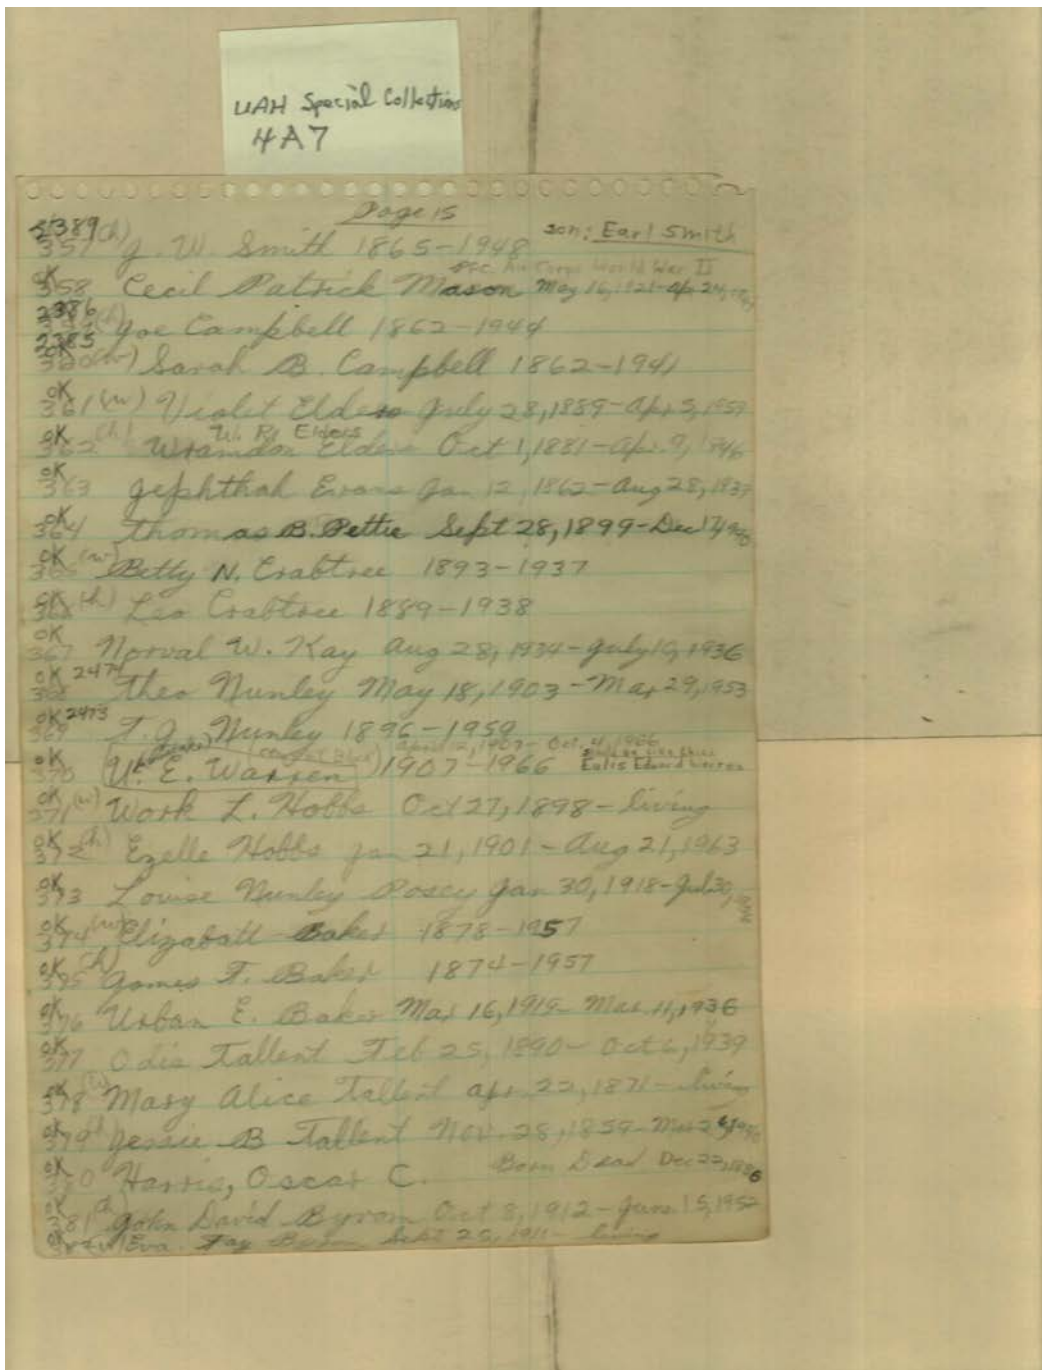 UAH Special Collections
4A7
Page 15
2389 (h) son: Earl Smith
357 J. W. Smith 1865-1948
Pfc. Air Corps World War II
OK
358 Cecil Patrick Mason May 16, 1921-Ap. 24,
2386
(h) Joe Campbell 1862-1944
2385
OK
360 (w) Sarah B. Campbell 1862-1941
OK
361 (w) Violet Elders July 28, 1889-Apr 5, 1959
OK W. R. Elders
362 (h) Elders Oct 1, 1881-Apr. 9, 1946
OK
363 Jephthah Evans Jan 12, 1862-Aug 28, 1937
OK
364 Thomas B. Pettie Sept 28, 1899-Dec 17,
OK
365 (w) Betty N. Crabtree 1893-1937
OK
366 (h) Leo Crabtree 1889-1938
OK
367 Norval W. Kay Aug 28, 1934-July 10, 1936
OK 2474
368 Theo Nunley May 18, 1903-Mar 29, 1953
OK 2473
369 T. J. Nunley 1896-1959
April 12, 1907-Oct. 4, 1966
OK
370 U. E. Warren 1907-1966 Eulis Edward Warren
OK
371 (w) Work L. Hobbs Oct 27, 1898-living
OK
372 (h) Ezelle Hobbs Jan 21, 1901-Aug 21, 1963
OK
373 Louise Nunley Posey Jan 30, 1918-Jul 30,
OK
374 (w) Elizabatt Baker 1878-1957
OK
375 (h) James F. Baker 1874-1957
OK
376 Urban E. Baker Mar 16, 1919-Mar. 11, 1936
OK
377 Odis Tallent Feb 25, 1890-Oct 6, 1939
OK
378 (w) Mary Alice Tallent Apr. 22, 1871-living
OK
379 (h) Jessie B Tallent Nov. 28, 1859-Mar 2
OK Born Dead Dec 22, 1886
380 Harris, Oscar C.
OK
381 (h) John David Byrom Oct 8, 1912-June 15, 1952
382 (w) Eva Fay Byrom Sept 25, 1911-living